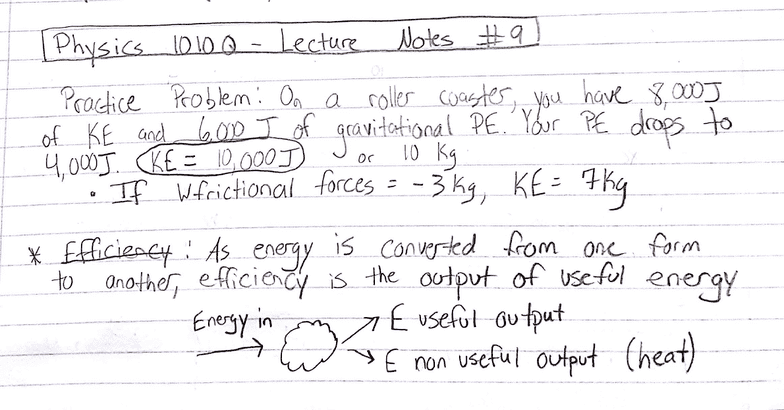 Physics 1010Q - Lecture Notes #9
Practice Problem: On a roller coaster, you have 8,000J
of KE and 6,000 J of gravitational PE. Your PE drops to
4,000J. KE = 10,000J or 10 Kg
• If Wfrictional forces = -3Kg, KE = 7Kg
* Efficiency: As energy is converted from one form
to another, efficiency is the output of useful energy
Energy in
E useful output
E non useful output (heat)